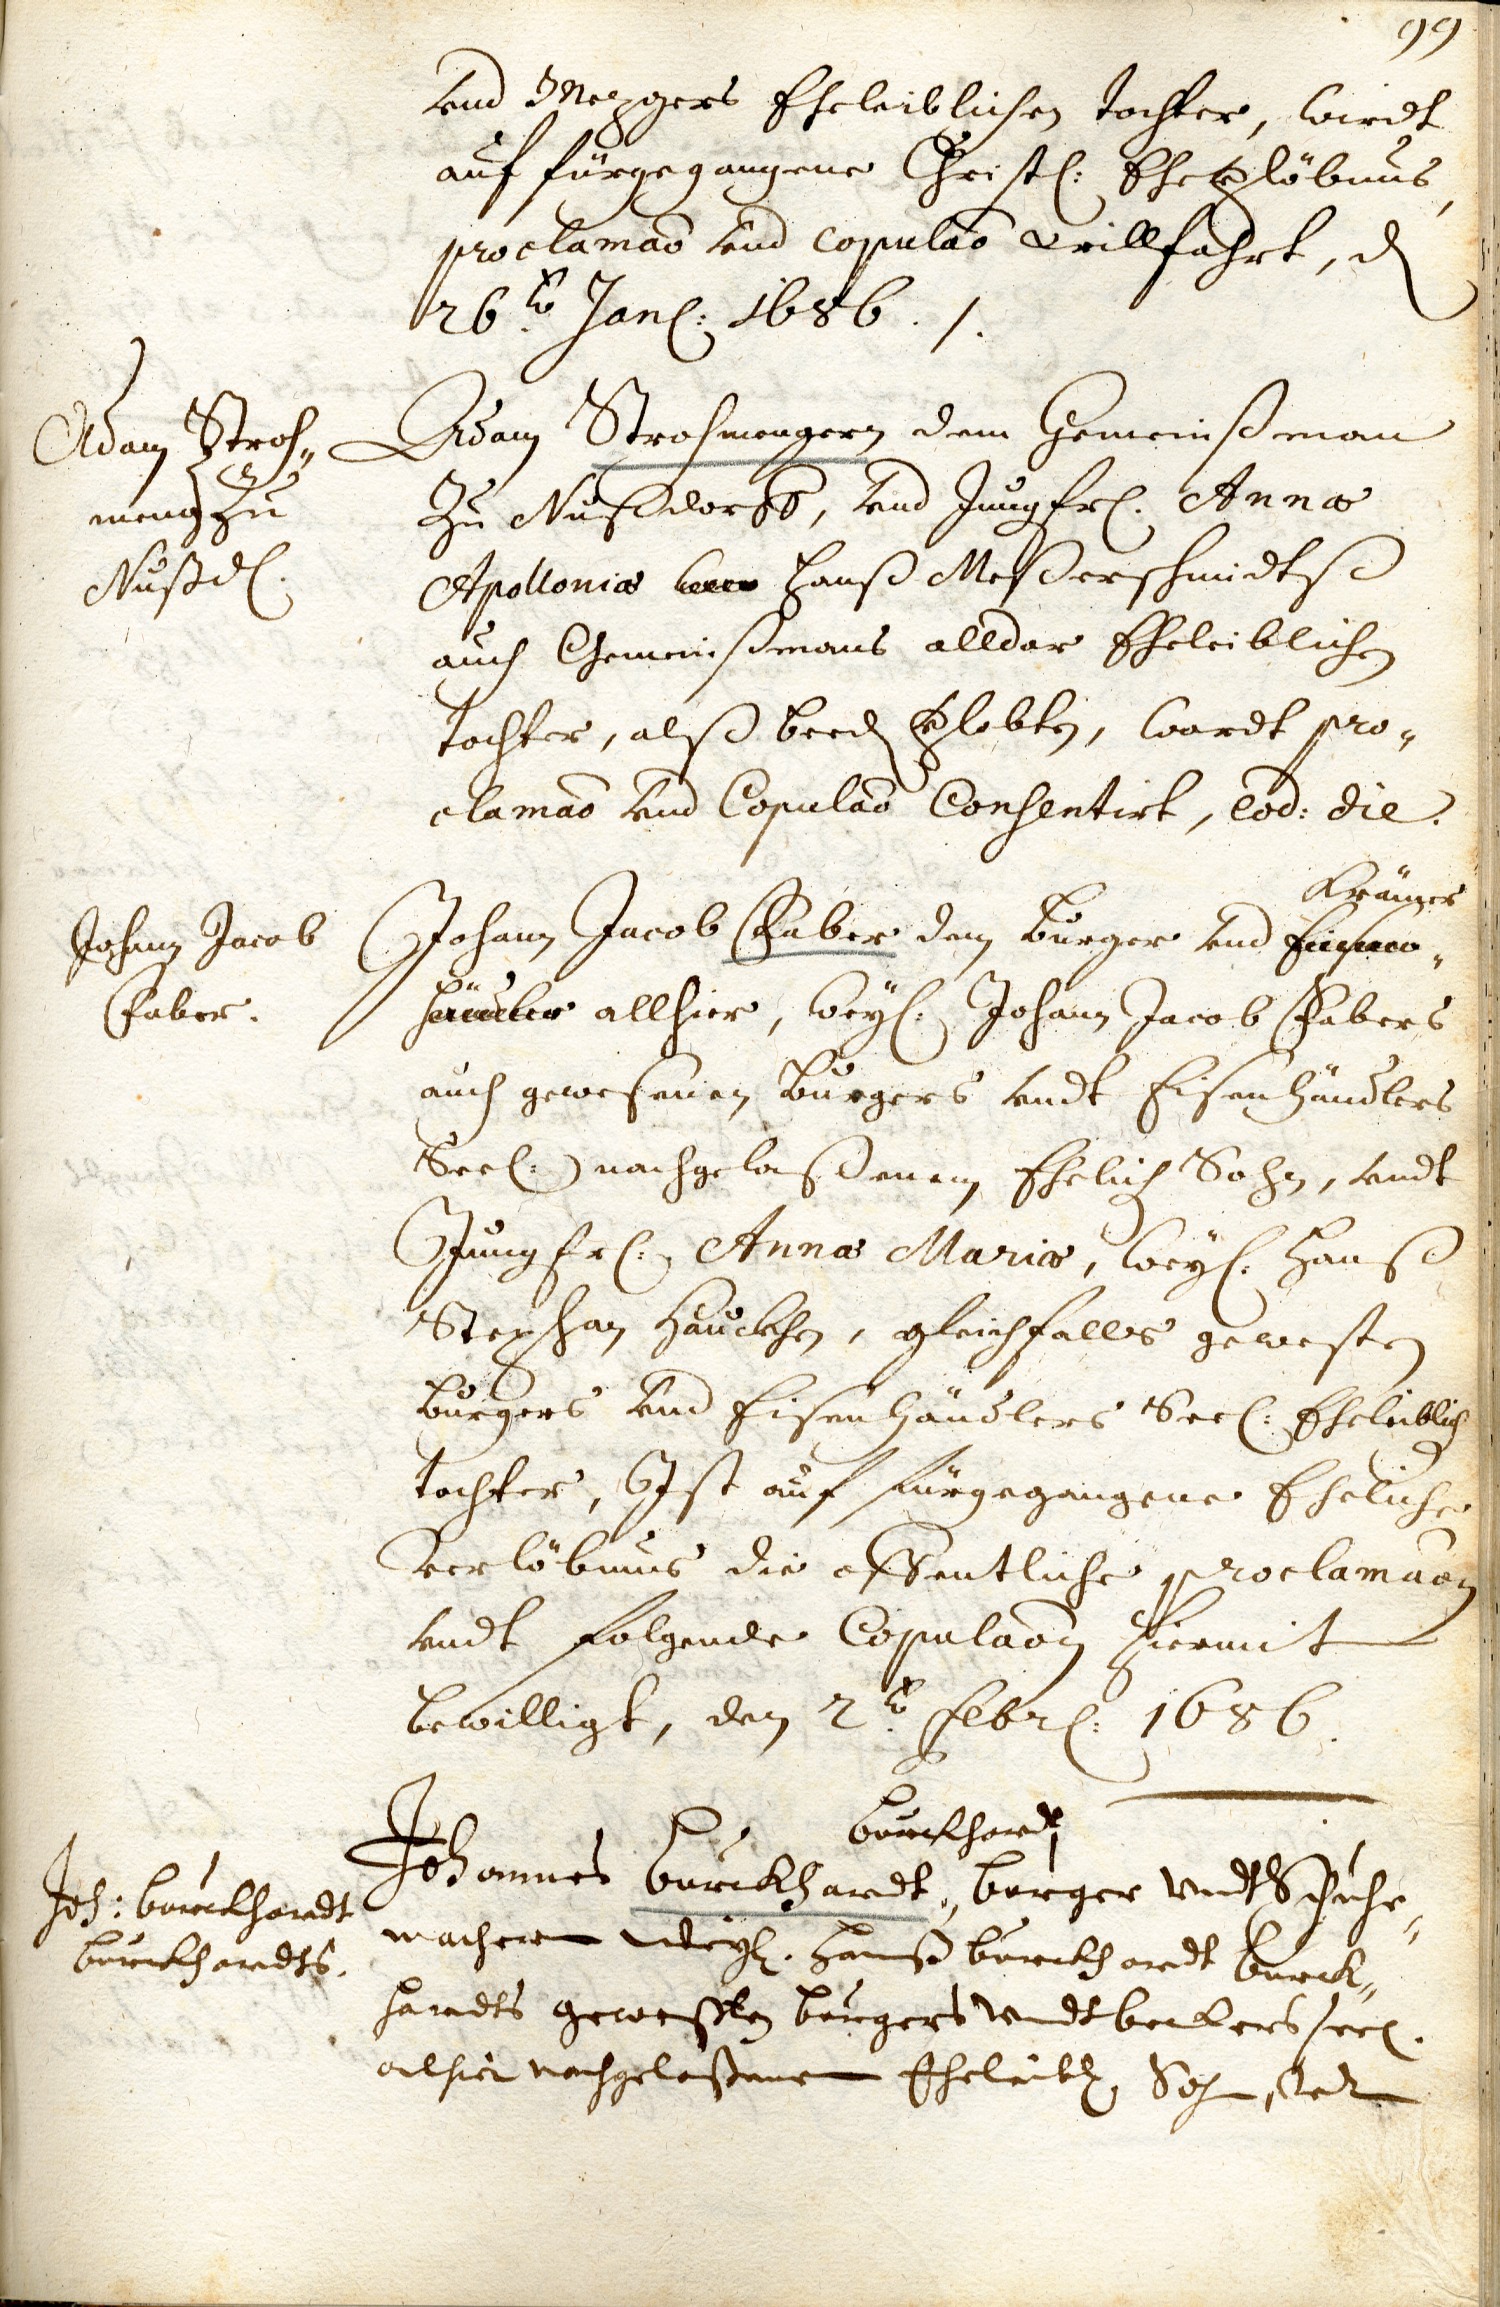 99
und Mezgers Eheleiblichen tochter, wirdt
auf fürgegangene Christl: Eheverlöbnus,
proclamaõ und copulaõ willfahrt, d
26.ten Janl: 1686. /.
Adam Stroh„
meng zu
Nußd.
Adam Strohmengern dem Gemeinßman
Zu Nußdorff, und Jungfr. Annæ
Apolloniæ Hanß Meßerschmidtß
auch Gemeinßmans alldar Eheleiblichen
tochter, alß beed verlobten, wardt pro„
clamaõ und Copulaõ Consentirt, eod: die.
Johann Jacob
Faber.
Krämer
Johann Jacob Faber dem Burger und Eisen„
händler allhier, weyl: Johann Jacob Fabers
auch gewesenen Burgers undt Eisenhändlers
Seel:) nachgelaßenem Ehelich Sohn, undt
Jungfr: Annæ Mariæ, weyl: Hanß
Stephan Hauckhen, gleichfalls gewesten
Burgers und Eisenhändlers Seel: Eheleiblich
tochter, Ist auf fürgegangene Eheliche
verlöbnus die offentliche proclamaõn
undt folgende Copulaõn hiermit
bewilligt, den 2.ten Febr: 1686.
Joh: burckhardt
burckhardts.
burckhardt
Johannes burckhardt, burger undt Schuhe„
machern weyl. Hanß burckhardt burck„
hardts geweßten burgers undt beckers seel.
alhier nachgelaßenem Eheleibl. Sohn, undt